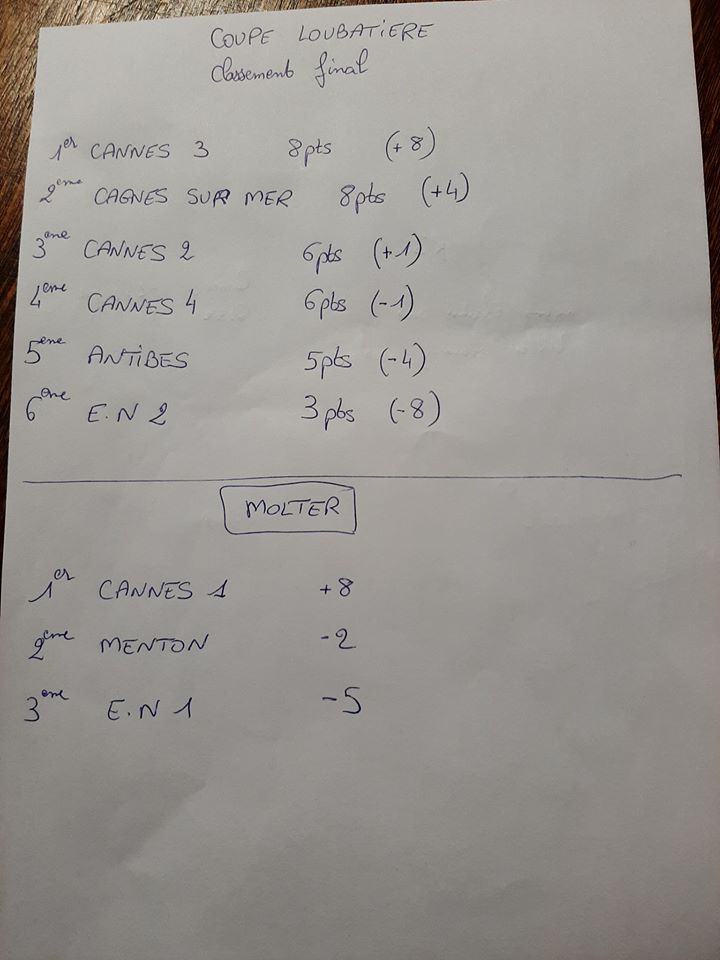 COUPE LOUBATIERE
Classement final
1er CANNES 3 8pts (+8)
2eme CAGNES SUR MER 8pts (+4)
3eme CANNES 2 6pts (+1)
4eme CANNES 4 6pts (-1)
5eme ANTIBES 5pts (-4)
6eme E.N 2 3pts (-8)
MOLTER
1er CANNES 1 +8
2eme MENTON -2
3eme E.N 1 -5